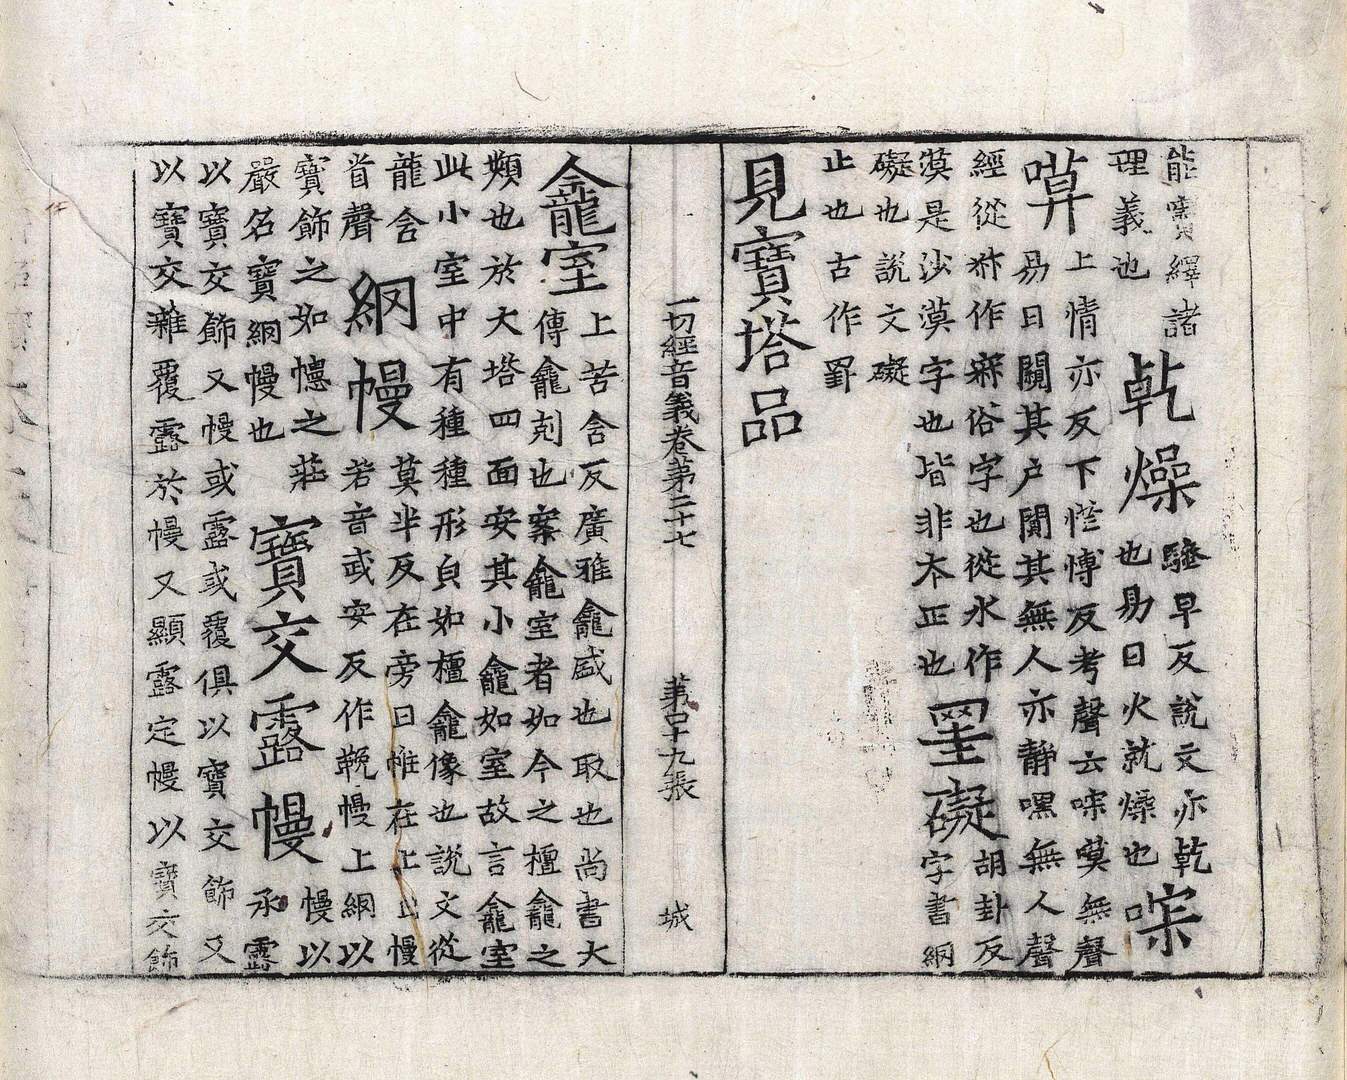 能寶繹諸理義也乾燥驗早反說文亦乾也易曰火就燥也㗬
嗼上情亦反下忙博反考聲云㗬嗼無聲易曰闚其户闃其無人亦靜嘿無人聲
經從作寐俗字也從水作漠是沙漠字也皆非夲正也罣礙胡卦反字書網
礙也說文礙止也古作罫
見寶塔品
一切經音義卷第二十七 第四十九張 城
龕室上苦含反廣雅龕盛也取也尚書大傳龕剋也案龕室者如今之檀龕之
類也於大塔四面安其小龕如室故言龕室此小室中有種種形皃如檀龕像也說文從
龍含省聲網幔莫半反在旁曰帷在上曰幔若音武安反作輓幔上網以
寶飾之如幰之莊嚴名寶網幔也寶交露幔幔以承露
以寶交飾又幔或露或覆俱以寶交飾又以寶交雜覆露於幔又顯露定幔以寶交飾